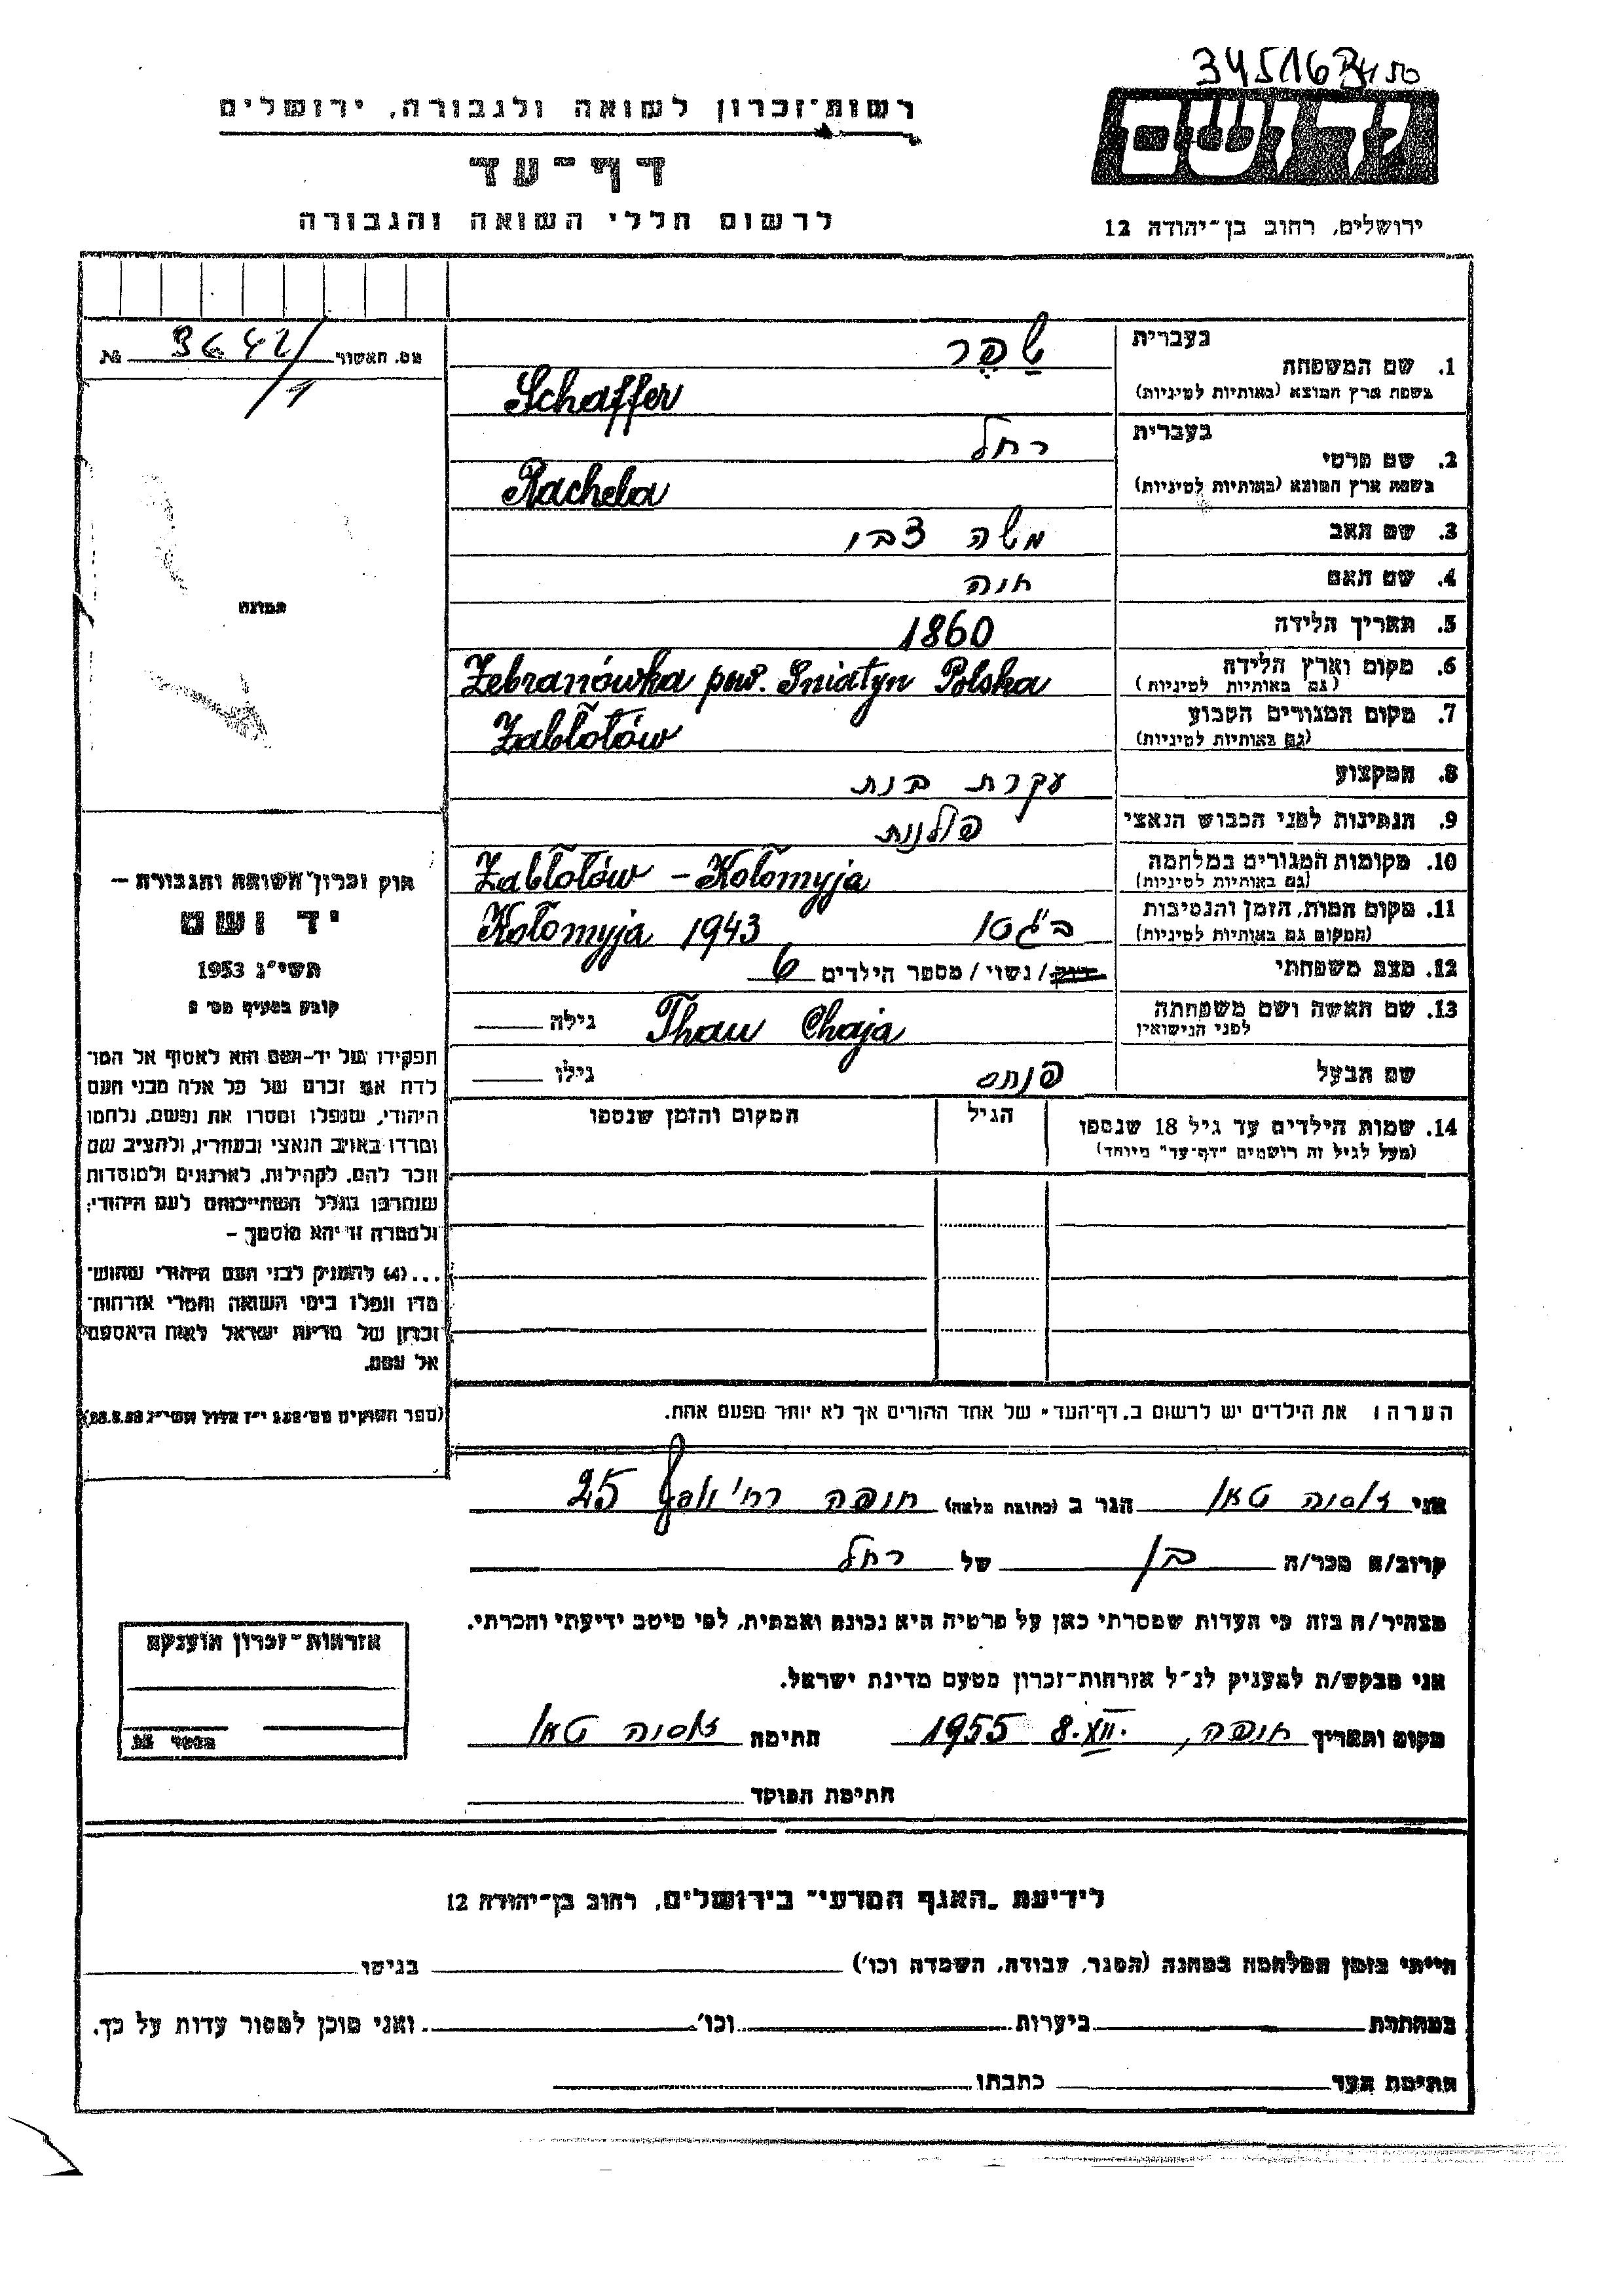 34516
רשות־זכרון לשואה ולגבורה, ירושלים
דף־עד
לרשום חללי השואה והגבורה
יד ושם
ירושלים, רחוב בן־יהודה 12
מס. האשור 3642/1 №
בעברית
1. שם המשפחה שפר
בשפת ארץ המוצא (באותיות לטיניות) Schaffer
בעברית
2. שם פרטי רחל
בשפת ארץ המוצא (באותיות לטיניות) Rachela
3. שם האב משה צבי
4. שם האם חנה
5. תאריך הלידה 1860
6. מקום וארץ הלידה Zebranówka pow. Śniatyn Polska
(גם באותיות לטיניות)
7. מקום המגורים הקבוע Zabłotów
(גם באותיות לטיניות)
8. המקצוע עקרת בית
9. הנתינות לפני הכבוש הנאצי פולנית
10. מקומות המגורים במלחמה Zabłotów - Kołomyja
(גם באותיות לטיניות)
11. מקום המות, הזמן והנסיבות בגטו Kołomyja 1943
(המקום גם באותיות לטיניות)
12. מצב משפחתי רווק / נשוי / מספר הילדים 6
13. שם האשה ושם משפחתה Thau Chaja גילה
לפני הנישואין
שם הבעל פנחס גילו
14. שמות הילדים עד גיל 18 שנספו הגיל המקום והזמן שנספו
(מעל לגיל זה רושמים "דף־עד" מיוחד)
הערה: את הילדים יש לרשום ב"דף־העד" של אחד ההורים אך לא יותר מפעם אחת.
תמונה
חוק זכרון השואה והגבורה –
יד ושם
תשי"ג 1953
קובע בסעיף מס' 2
תפקידו של יד־ושם הוא לאסוף אל המו־
לדת את זכרם של כל אלה מבני העם
היהודי, שנפלו ומסרו את נפשם, נלחמו
ומרדו באויב הנאצי ובעוזריו, ולהציב שם
וזכר להם, לקהילות, לארגונים ולמוסדות
שנחרבו בגלל השתייכותם לעם היהודי;
ולמטרה זו יהא מוסמך –
...(4) להעניק לבני העם היהודי שהוש־
מדו ונפלו בימי השואה והמרי אזרחות־
זכרון של מדינת ישראל לאות היאספם
אל עמם.
(ספר החוקים מס' 132 י"ז אלול תשי"ג 28.8.53)
אני טאו הגר ב (כתובת מלאה) חיפה רח' 25
קרוב/ה מכר/ה בן של רחל
מצהיר/ה בזה כי העדות שמסרתי כאן על פרטיה היא נכונה ואמתית, לפי מיטב ידיעתי והכרתי.
אני מבקש/ת להעניק לנ"ל אזרחות־זכרון מטעם מדינת ישראל.
מקום ותאריך חיפה, 8.XII. 1955 חתימה טאו
חתימת הפוקד
אזרחות־זכרון הוענקה
מספר
לידיעת "האגף המדעי" בירושלים, רחוב בן־יהודה 12
הייתי בזמן המלחמה במחנה (הסגר, עבודה, השמדה וכו') בגיטו
במחתרת ביערות וכו' ואני מוכן למסור עדות על כך.
חתימת העד כתבתו